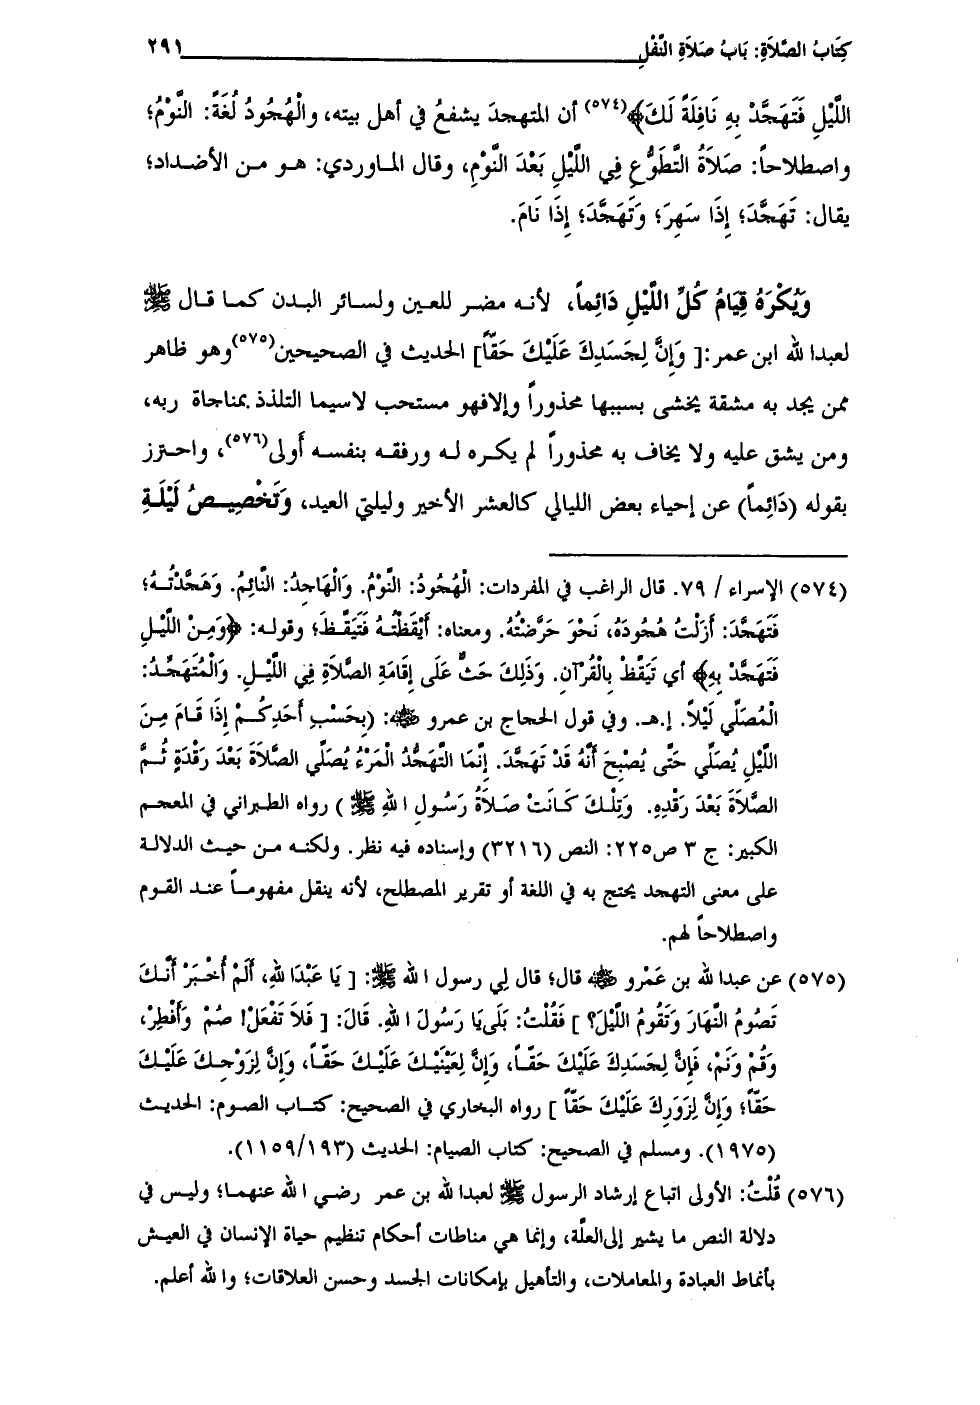 كِتَابُ الصَّلَاةِ: بَابُ صَلَاةِ النَّفْلِ ٢٩١
اللَّيْلِ فَتَهَجَّدْ بِهِ نَافِلَةً لَكَ﴾(٥٧٤) أن المتهجدَ يشفعُ في أهل بيته، والْهُجُودُ لُغَةً: النَّوْمُ؛
واصطلاحاً: صَلَاةُ التَّطَوُّعِ فِي اللَّيْلِ بَعْدَ النَّوْمِ، وقال الماوردي: هو من الأضداد؛
يقال: تَهَجَّدَ؛ إِذَا سَهِرَ؛ وَتَهَجَّدَ؛ إِذَا نَامَ.
وَيُكْرَهُ قِيَامُ كُلِّ اللَّيْلِ دَائِماً، لأنه مضر للعين ولسائر البدن كما قال ﷺ
لعبدا لله ابن عمر:[ وَإِنَّ لِجَسَدِكَ عَلَيْكَ حَقّاً] الحديث في الصحيحين(٥٧٥)وهو ظاهر
ممن يجد به مشقة يخشى بسببها محذوراً وإلافهو مستحب لاسيما التلذذ بمناجاة ربه،
ومن يشق عليه ولا يخاف به محذوراً لم يكره له ورفقه بنفسه أولى(٥٧٦)، واحترز
بقوله (دَائِماً) عن إحياء بعض الليالي كالعشر الأخير وليلتي العيد، وَتَخْصِيصُ لَيْلَةِ
(٥٧٤) الإسراء / ٧٩. قال الراغب في المفردات: الْهُجُودُ: النَّوْمُ. وَالْهَاجِدُ: النَّائِمُ. وَهَجَّدْتُهُ؛
فَتَهَجَّدَ: أَزَلْتُ هُجُودَهُ، نَحْوَ حَرَّضْتُهُ. ومعناه: أَيْقَظْتُهُ فَتَيَقَّظَ؛ وقوله: ﴿وَمِنْ اللَّيْلِ
فَتَهَجَّدْ بِهِ﴾ أي تَيَقَّظْ بِالْقُرْآنِ. وَذَلِكَ حَثٌّ عَلَى إِقَامَةِ الصَّلَاةِ فِي اللَّيْلِ. وَالْمُتَهَجِّدُ:
الْمُصَلِّي لَيْلاً. إ.هـ. وفي قول الحجاج بن عمرو ﷺ: (بِحَسْبِ أَحَدِكُمْ إِذَا قَامَ مِنَ
اللَّيْلِ يُصَلِّي حَتَّى يُصْبِحَ أَنَّهُ قَدْ تَهَجَّدَ. إِنَّمَا التَّهَجُّدُ الْمَرْءُ يُصَلِّي الصَّلَاةَ بَعْدَ رَقْدَةٍ ثُمَّ
الصَّلَاةَ بَعْدَ رَقْدِهِ. وَتِلْكَ كَانَتْ صَلَاةُ رَسُولِ ا للهِ ﷺ ) رواه الطبراني في المعجم
الكبير: ج ٣ ص٢٢٥: النص (٣٢١٦) وإسناده فيه نظر. ولكنه من حيث الدلالة
على معنى التهجد يحتج به في اللغة أو تقرير المصطلح، لأنه ينقل مفهوماً عند القوم
واصطلاحاً لهم.
(٥٧٥) عن عبدا لله بن عَمْرو ﷺ قال؛ قال لِي رسول ا لله ﷺ: [ يَا عَبْدَا للهِ، أَلَمْ أُخْبَرْ أَنَّكَ
تَصُومُ النَّهَارَ وَتَقُومُ اللَّيْلَ؟ ] فَقُلْتُ: بَلَى يَا رَسُولَ ا للهِ. قَالَ: [ فَلَا تَفْعَلْ! صُمْ وَأَفْطِرْ،
وَقُمْ وَنَمْ، فَإِنَّ لِجَسَدِكَ عَلَيْكَ حَقّاً، وَإِنَّ لِعَيْنَيْكَ عَلَيْكَ حَقّاً، وَإِنَّ لِزَوْجِكَ عَلَيْكَ
حَقّاً؛ وَإِنَّ لِزَوَرِكَ عَلَيْكَ حَقّاً ] رواه البخاري في الصحيح: كتاب الصوم: الحديث
(١٩٧٥). ومسلم في الصحيح: كتاب الصيام: الحديث (١١٥٩/١٩٣).
(٥٧٦) قُلْتُ: الأولى اتباع إرشاد الرسول ﷺ لعبدا لله بن عمر رضي ا لله عنهما؛ وليس في
دلالة النص ما يشير إلى العلَّة، وإنما هي مناطات أحكام تنظيم حياة الإنسان في العيش
بأنماط العبادة والمعاملات، والتأهيل بإمكانات الجسد وحسن العلاقات؛ وا لله أعلم.